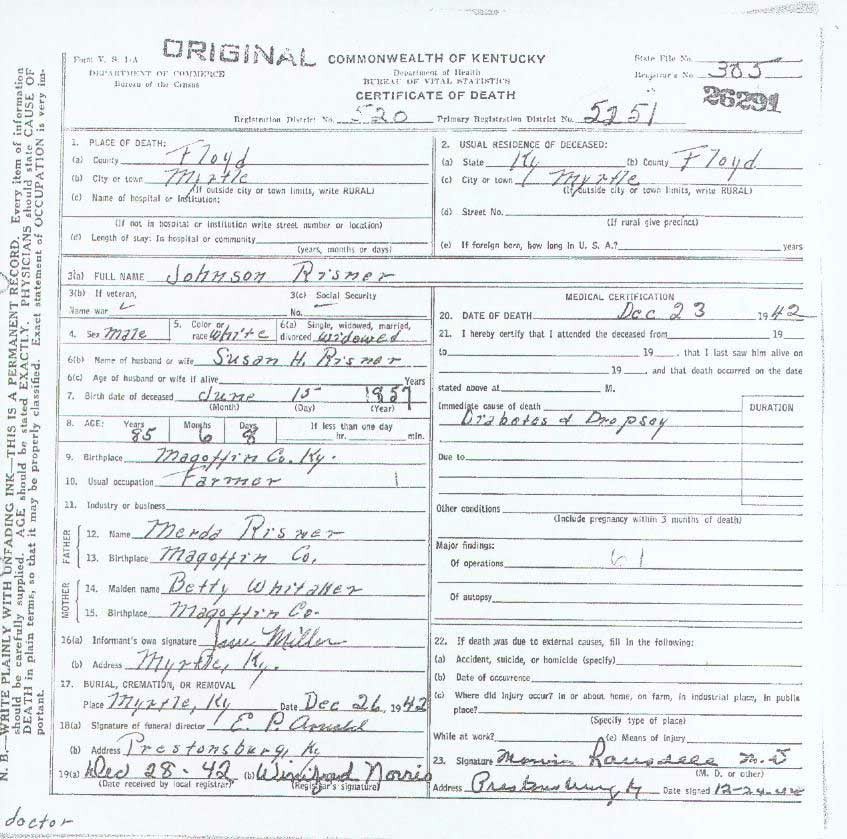 ORIGINAL
Form V. S. 1-A
DEPARTMENT OF COMMERCE
Bureau of the Census
COMMONWEALTH OF KENTUCKY
Department of Health
BUREAU OF VITAL STATISTICS
CERTIFICATE OF DEATH
State File No.
Registrar's No. 385
26291
Registration District No. 520 Primary Registration District No. 5251
N. B.—WRITE PLAINLY WITH UNFADING INK—THIS IS A PERMANENT RECORD. Every item of information
should be carefully supplied. AGE should be stated EXACTLY. PHYSICIANS should state CAUSE OF
DEATH in plain terms, so that it may be properly classified. Exact statement of OCCUPATION is very im-
portant.
1. PLACE OF DEATH:
(a) County Floyd
(b) City or town Myrtle
(If outside city or town limits, write RURAL)
(c) Name of hospital or institution:
(If not in hospital or institution write street number or location)
(d) Length of stay: In hospital or community
(years, months or days)
2. USUAL RESIDENCE OF DECEASED:
(a) State Ky (b) County Floyd
(c) City or town Myrtle
(If outside city or town limits, write RURAL)
(d) Street No.
(If rural give precinct)
(e) If foreign born, how long in U. S. A.? years
3(a) FULL NAME Johnson Risner
3(b) If veteran,
Name war
3(c) Social Security
No.
4. Sex Male
5. Color or
race White
6(a) Single, widowed, married,
divorced Widowed
6(b) Name of husband or wife Susan H. Risner
6(c) Age of husband or wife if alive Years
7. Birth date of deceased June 15 1857
(Month) (Day) (Year)
8. AGE: Years Months Days If less than one day
85 6 8 hr. min.
9. Birthplace Magoffin Co. Ky.
10. Usual occupation Farmer
11. Industry or business
FATHER
12. Name Merda Risner
13. Birthplace Magoffin Co.
MOTHER
14. Maiden name Betty Whitaker
15. Birthplace Magoffin Co.
16(a) Informant's own signature Miller
(b) Address Myrtle, Ky.
17. BURIAL, CREMATION, OR REMOVAL
Place Myrtle, Ky Date Dec 26, 1942
18(a) Signature of funeral director E. P. Arnold
(b) Address Prestonsburg, K.
19(a) Dec 28-42 (b) Winifred Norris
(Date received by local registrar) (Registrar's signature)
MEDICAL CERTIFICATION
20. DATE OF DEATH Dec 23 1942
21. I hereby certify that I attended the deceased from 19
to 19 , that I last saw him alive on
19 , and that death occurred on the date
stated above at M.
Immediate cause of death
DURATION
Diabetes & Dropsey
Due to
Other conditions
(Include pregnancy within 3 months of death)
Major findings:
Of operations 61
Of autopsy
22. If death was due to external causes, fill in the following:
(a) Accident, suicide, or homicide (specify)
(b) Date of occurrence
(c) Where did injury occur? in or about home, on farm, in industrial place, in public
place?
(Specify type of place)
While at work? (e) Means of Injury
23. Signature M.D
(M. D. or other)
Address Prestonsburg Ky Date signed 12-24-42
doctor